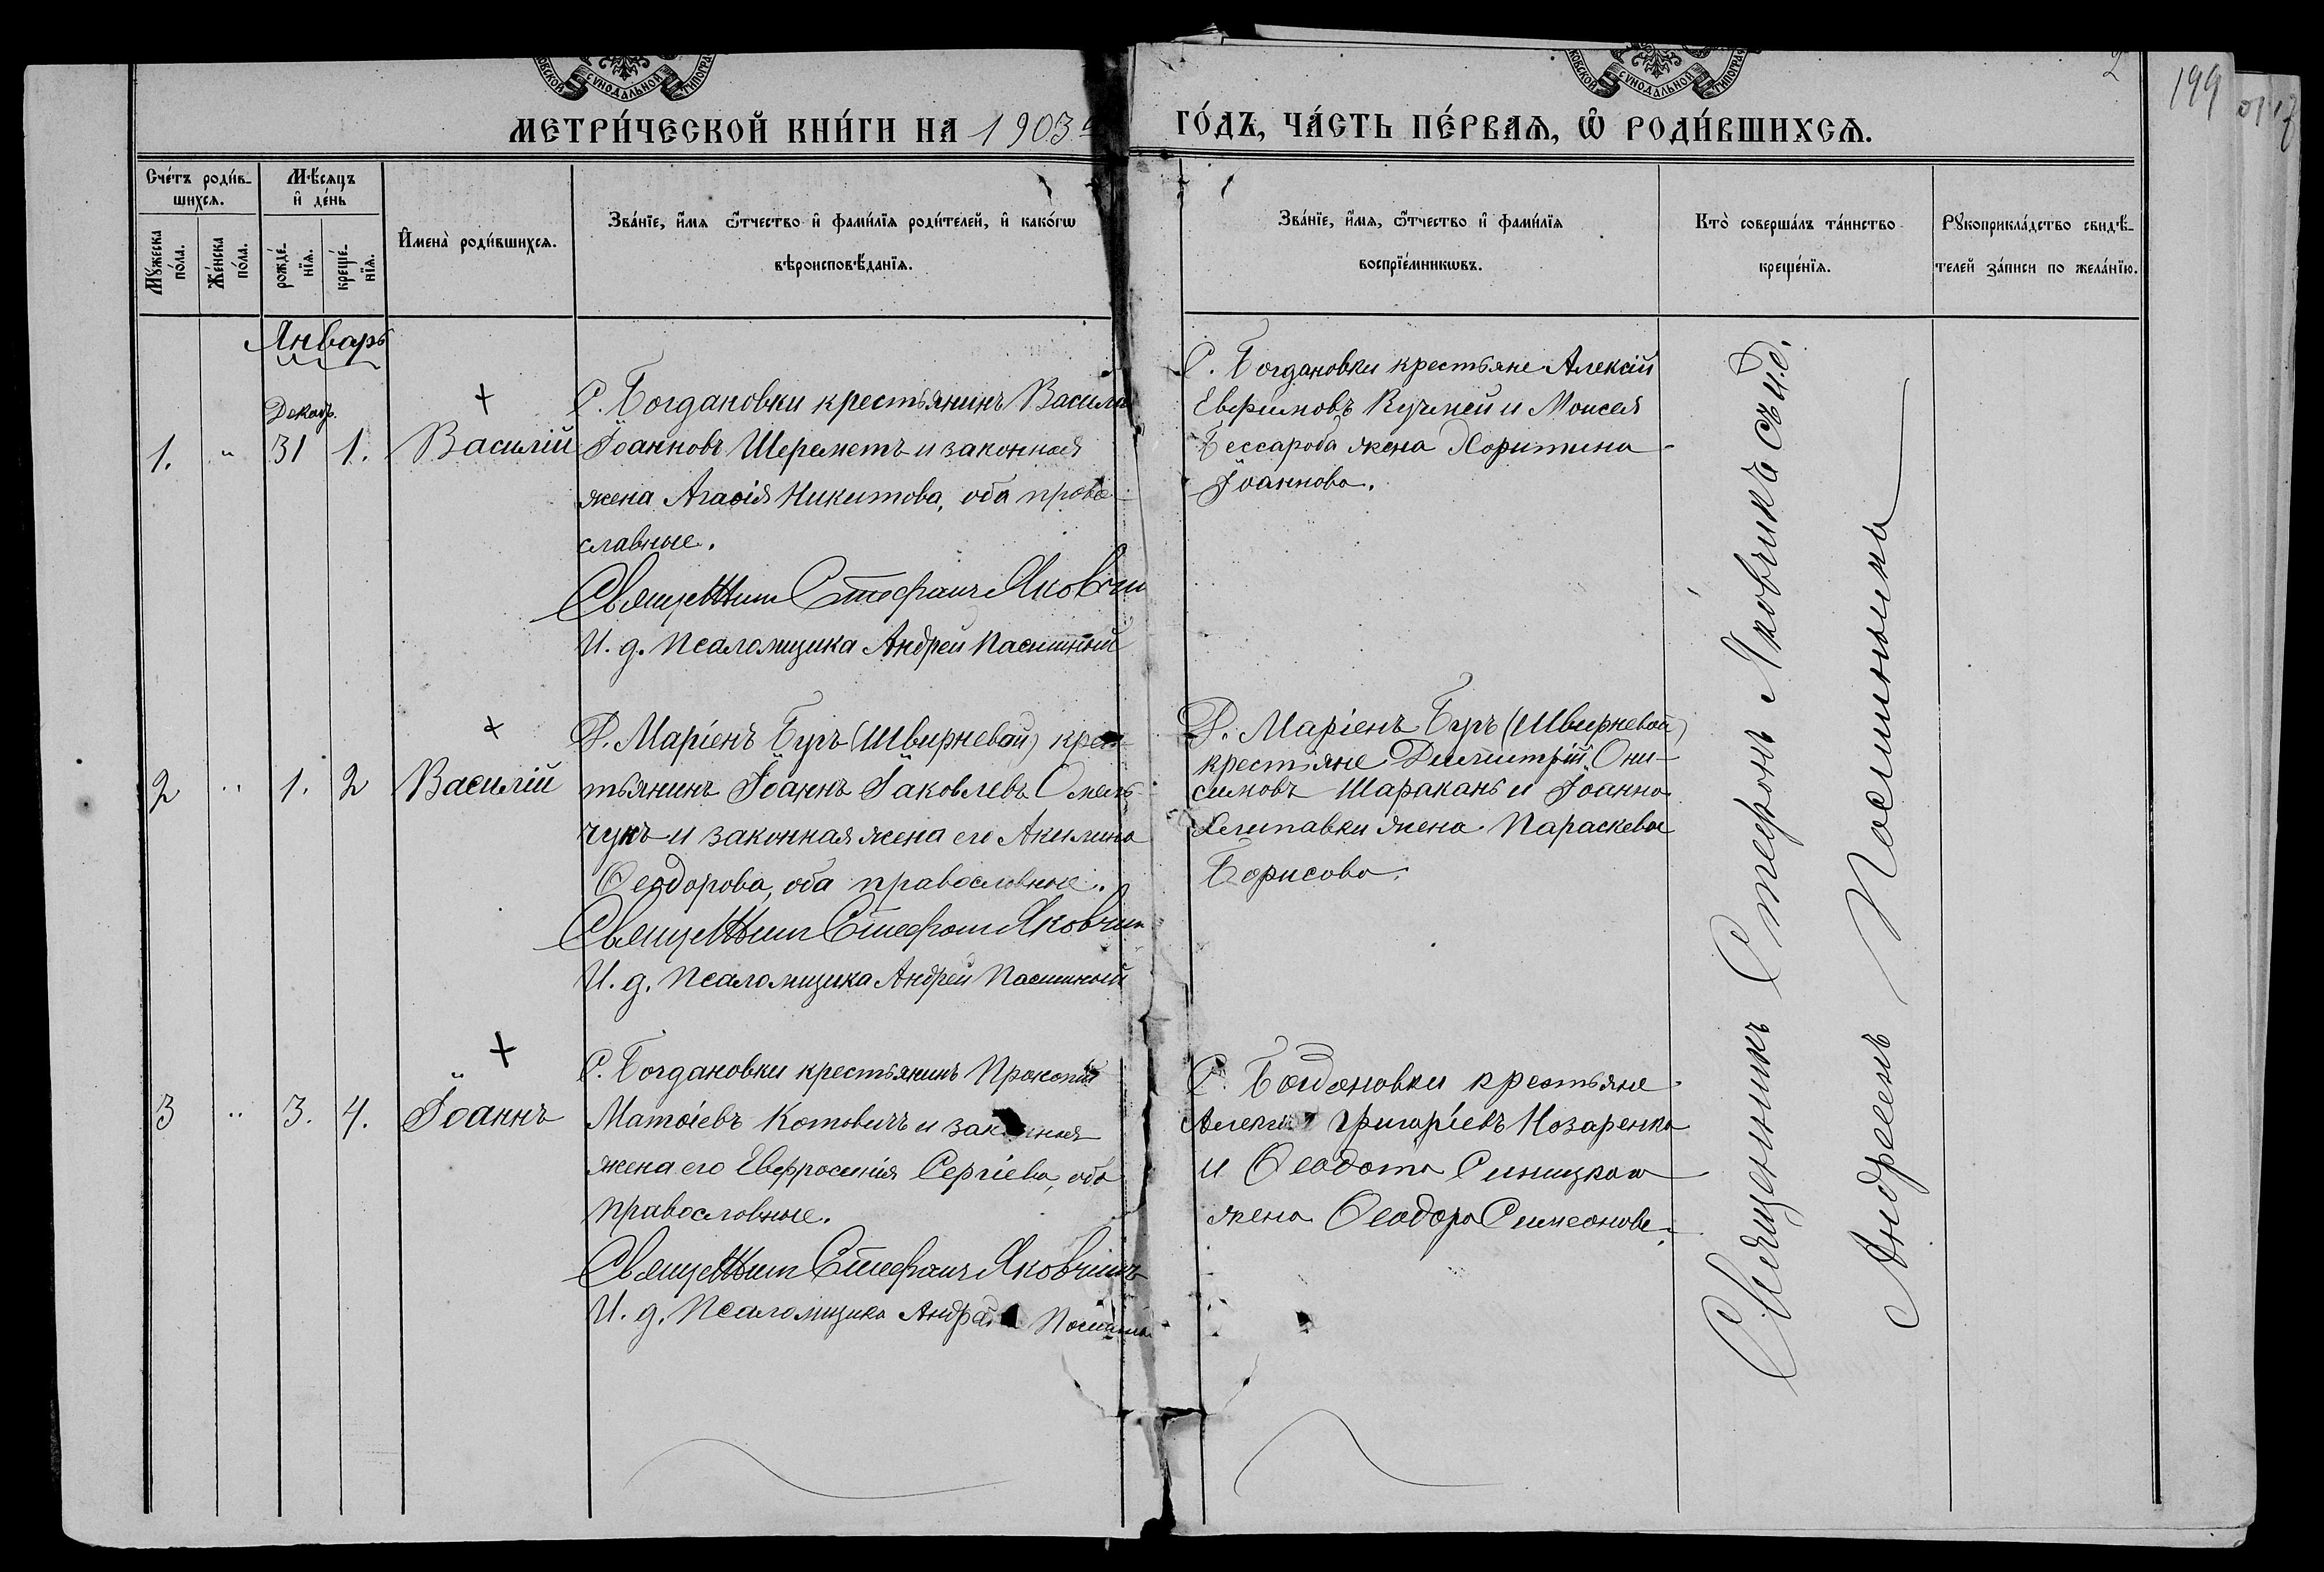 СУНОДАЛЬНОЙ
СУНОДАЛЬНОЙ
2
199
МЕТРИ́ЧЕСКОЙ КНИ́ГИ НА 1903й
ГО́ДЪ, ЧА́СТЬ ПЕ́РВАѦ, Ѡ҆ РОДИ́ВШИХСѦ.
Сче́тъ роди́в-
шихсѧ.
Мꙋ́жеска по́ла.
Же́нска по́ла.
Мѣ́сѧцъ
и҆ де́нь
рожде́-
нїѧ.
креще́-
нїѧ.
И҆мена̀ роди́вшихсѧ.
Зва́нїе, и҆́мѧ ѻ҆́тчество и҆ фами́лїѧ роди́телей, и҆ како́гѡ
вѣроисповѣ́данїѧ.
Зва́нїе, и҆́мѧ, ѻ҆́тчество и҆ фами́лїѧ
воспрїе́мникѡвъ.
Кто̀ соверша́лъ та́инство
креще́нїѧ.
Рꙋкоприкла́дство свидѣ́-
телей за́писи по жела́нїю.
Январь
Декабр.
1. " 31 1. Василій
С. Богдановки крестьянинъ Василій
Іоанновъ Шереметъ и законная
жена Агаѳія Никитова, оба право-
славные.
Священник Стефанъ Яковчик
И. д. Псаломщика Андрей Пасишный
С. Богдановки крестьяне Алексій
Евфимовъ Кучмей и Моисея
Бессараба жена Харитина
Іоаннова.
2 " 1. 2 Василій
Д. Маріенъ Буръ (Швирневой) крес-
тьянинъ Іоаннъ Іаковлевъ Омель-
чукъ и законная жена его Акилина
Ѳеодорова, оба православные.
Священник Стефанъ Яковчик
И. д. Псаломщика Андрей Пасишный
Д. Маріенъ Буръ (Швирневой)
крестьяне Димитрій Они-
симовъ Шаракань и Іоанна
жена Параскева
Борисова.
3 " 3. 4. Іоаннъ
С. Богдановки крестьянинъ Прокопій
Матѳіевъ Котовичъ и законная
жена его Евфросинія Сергіева, оба
православные.
Священник Стефанъ Яковчикъ
И. д. Псаломщика Андрей
С. Богдановки крестьяне
Алексій Григоріевъ Назаренко
и Ѳеодота Синицкаго
жена Ѳеодора Симеонова.
Священникъ Стефанъ Яковчикъ съ и.д.
Андреемъ Пасишнымъ